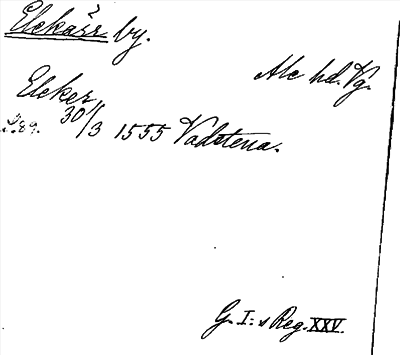 Elekärr by.
Ale hd. Vg.
Eleker
30/3 1555 Vadstena.
G. I:s Reg. XXV.